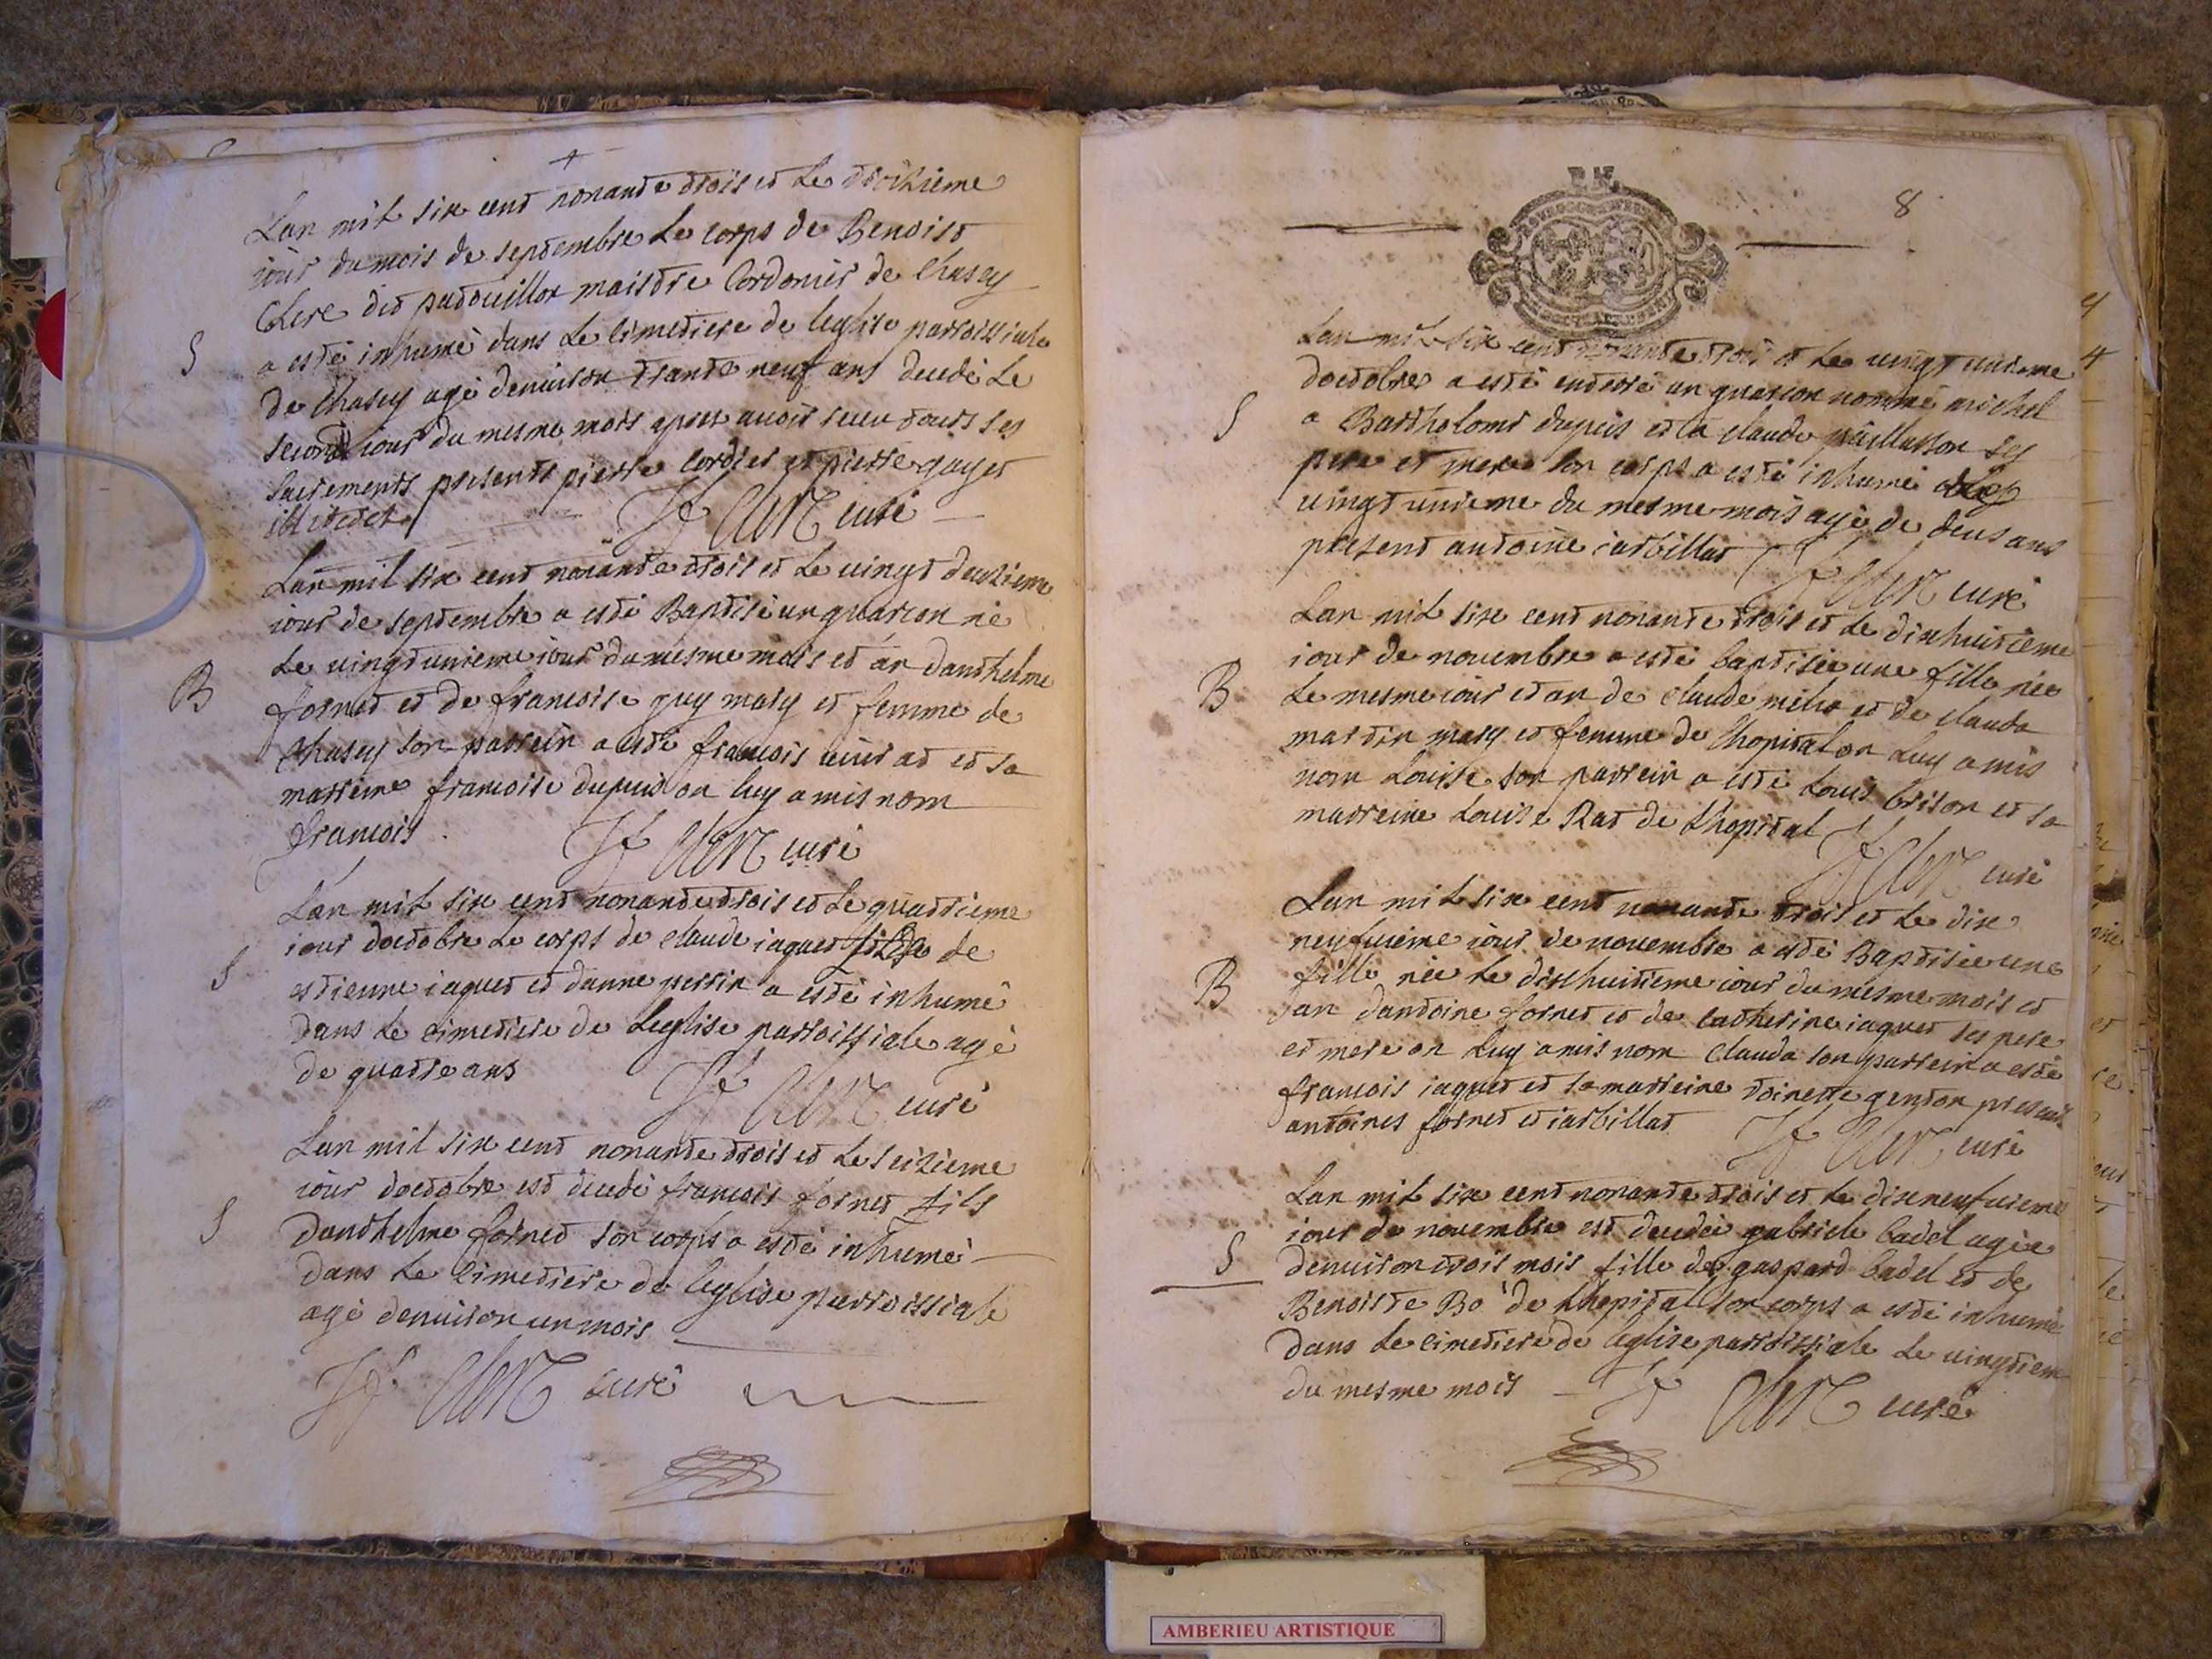 Lan mil six cent nonante trois et le troisieme
iour du mois de septembre le corps de Benoist
Clere dit patouillon maistre Cordonier de Chasey
S
a esté inhumé dans le cimetiere de leglise parroissiale
de Chasey agé denuiron trante neuf ans decedé le
second iour du mesme mois apres auoir receu touts ses
sacrements presents pierre cordier et pierre gayet
illiterez
curé
Lan mil six cent nonante trois et le uingt deuxieme
iour de septembre a esté Baptisé un guarcon né
le uingtunieme iour du mesme mois et an danthelme
B
fornet et de francoise guy mary et femme de
Chasey son parrein a esté francois et sa
marreine francoise dupuis on luy a mis nom
francois
curé
Lan mil six cent nonante trois et le quattrieme
iour doctobre le corps de claude iaquet de
S
estienne iaquet et danne perrin a esté inhumé
dans le cimetiere de leglise parroissiale agé
de quattre ans
curé
Lan mil six cent nonante trois et le seizieme
iour doctobre est decedé francois fornet fils
S
danthelme fornet son corps a esté inhumé
dans le cimetiere de leglise parroissiale
agé denuiron un mois
curé
8
Lan mil six cent nonante trois et le uingt unieme
doctobre a esté enterré un guarcon nommé michel
S
a Bartholomé dupuis et a claude paillasson ses
pere et mere son corps a esté inhumé
uingt unieme du mesme mois agé de deus ans
present antoine iarbillat
curé
Lan mil six cent nonante trois et le dixhuitieme
iour de nouembre a esté baptisée une fille née
B
le mesme iour et an de claude et de clauda
martin mary et femme de lhopital on luy a mis
nom Louise son parrein a esté Louis brison et sa
marreine Louise Rat de lhopital
curé
Lan mil six cent nonante trois et le dix
neufuieme iour de nouembre a esté Baptisée une
B
fille née le dixhuitieme iour du mesme mois et
an dantoine fornet et de catherine iaquet ses pere
et mere on luy a mis nom Clauda son parrein a esté
francois iaquet et sa marreine toinette genton presents
antoines fornet et iarbillat
curé
Lan mil six cent nonante trois et le dixneufuieme
iour de nouembre est decedée gabriele badel agée
S
denuiron trois mois fille de gaspard badel et de
Benoiste Bo de lhopital son corps a esté inhumé
dans le cimetiere de leglise parroissiale le uingtieme
du mesme mois
curé
AMBERIEU ARTISTIQUE